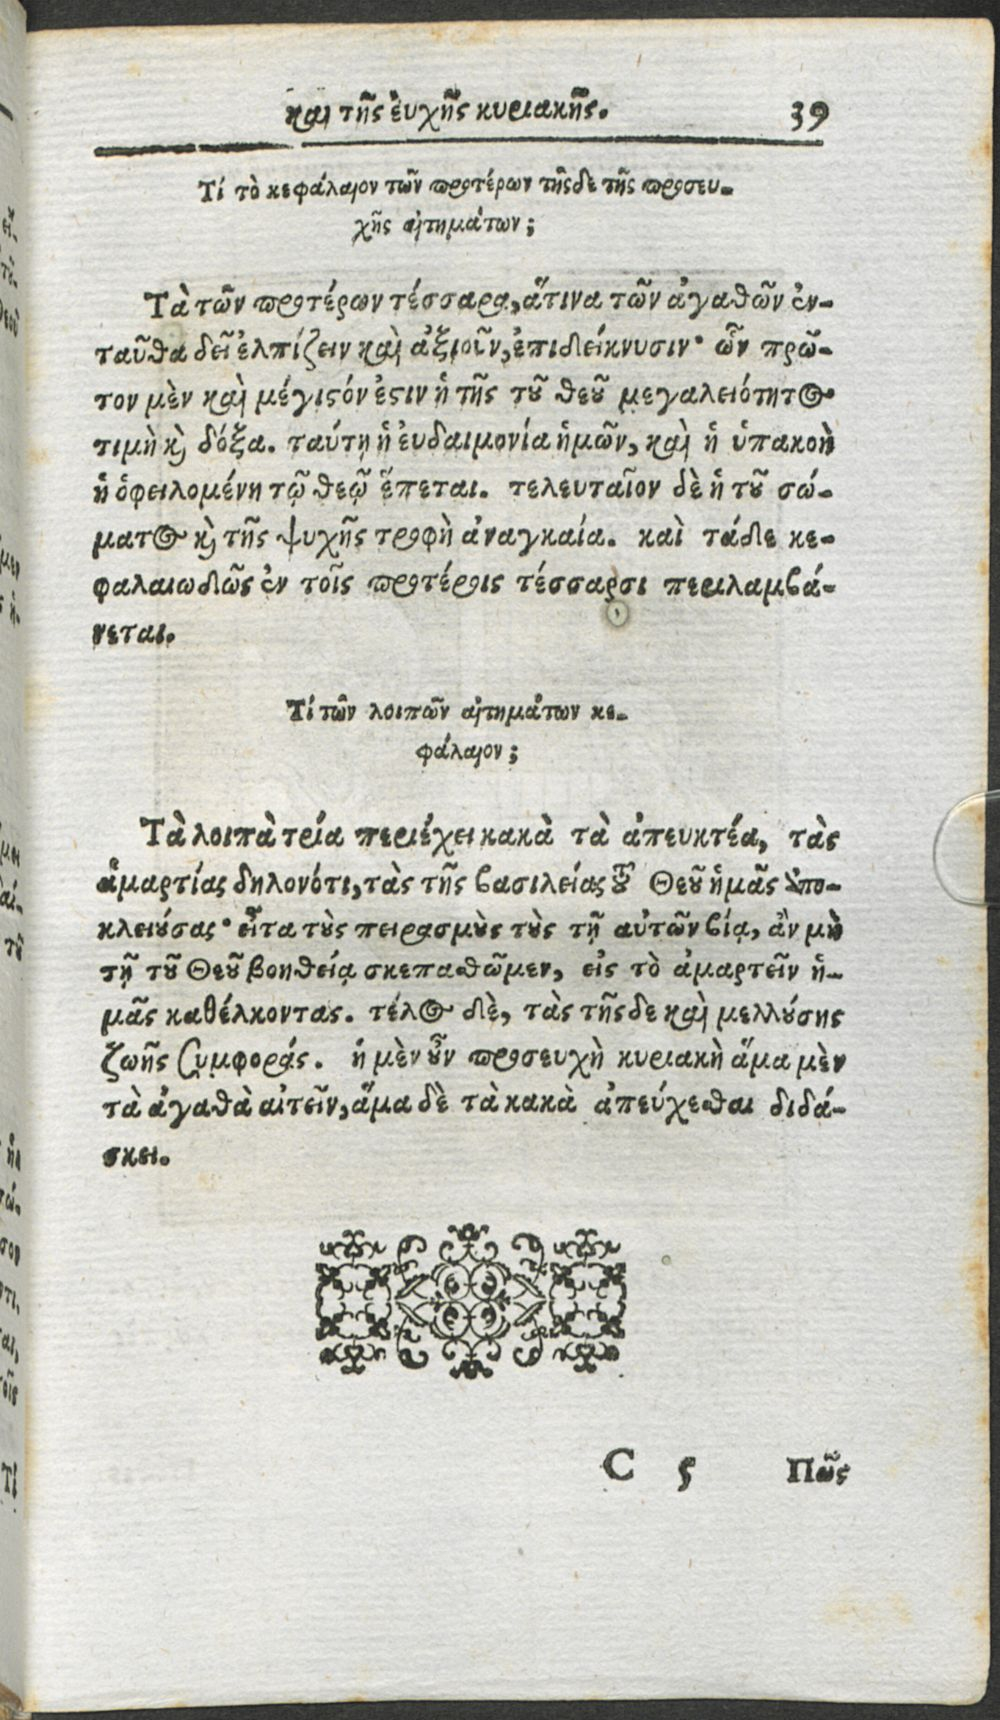 καὶ τῆς ἐυχῆς κυριακῆς. 39
Τί τὸ κεφάλαιον τῶν προτέρων τῆςδε τῆς προσευ-
χῆς αἰτημάτων;
Τὰ τῶν προτέρων τέσσαρα, ἅτινα τῶν ἀγαθῶν ἐν-
ταῦθα δεῖ ἐλπίζειν καὶ ἀξιοῦν, ἐπιδείκνυσιν· ὧν πρῶ-
τον μὲν καὶ μέγιϛόν ἐϛιν ἡ τῆς τοῦ θεοῦ μεγαλειότητος
τιμὴ καὶ δόξα. ταύτῃ ἡ ἐυδαιμονία ἡμῶν, καὶ ἡ ὑπακοὴ
ἡ ὀφειλομένη τῷ θεῷ ἕπεται. τελευταῖον δὲ ἡ τοῦ σώ-
ματος καὶ τῆς ψυχῆς τροφὴ ἀναγκαία. καὶ τάδε κε-
φαλαιωδῶς ἐν τοῖς προτέροις τέσσαρσι περιλαμβά-
νεται.
Τί τῶν λοιπῶν αἰτημάτων κε-
φάλαιον;
Τὰ λοιπὰ τρία περιέχει κακὰ τὰ ἀπευκτέα, τὰς
ἁμαρτίας δηλονότι, τὰς τῆς βασιλείας τοῦ Θεοῦ ἡμᾶς ὑπο-
κλειούσας· εἶτα τοὺς πειρασμοὺς τοὺς τῇ αὐτῶν βίᾳ, ἂν μὴ
τῇ τοῦ Θεοῦ βοηθείᾳ σκεπαθῶμεν, εἰς τὸ ἁμαρτεῖν ἡ-
μᾶς καθέλκοντας. τέλος δὲ, τὰς τῆςδε καὶ μελλούσης
ζωῆς συμφοράς. ἡ μὲν οὖν προσευχὴ κυριακὴ ἅμα μὲν
τὰ ἀγαθὰ αἰτεῖν, ἅμα δὲ τὰ κακὰ ἀπεύχεσθαι διδά-
σκει.
C 5 Πῶς